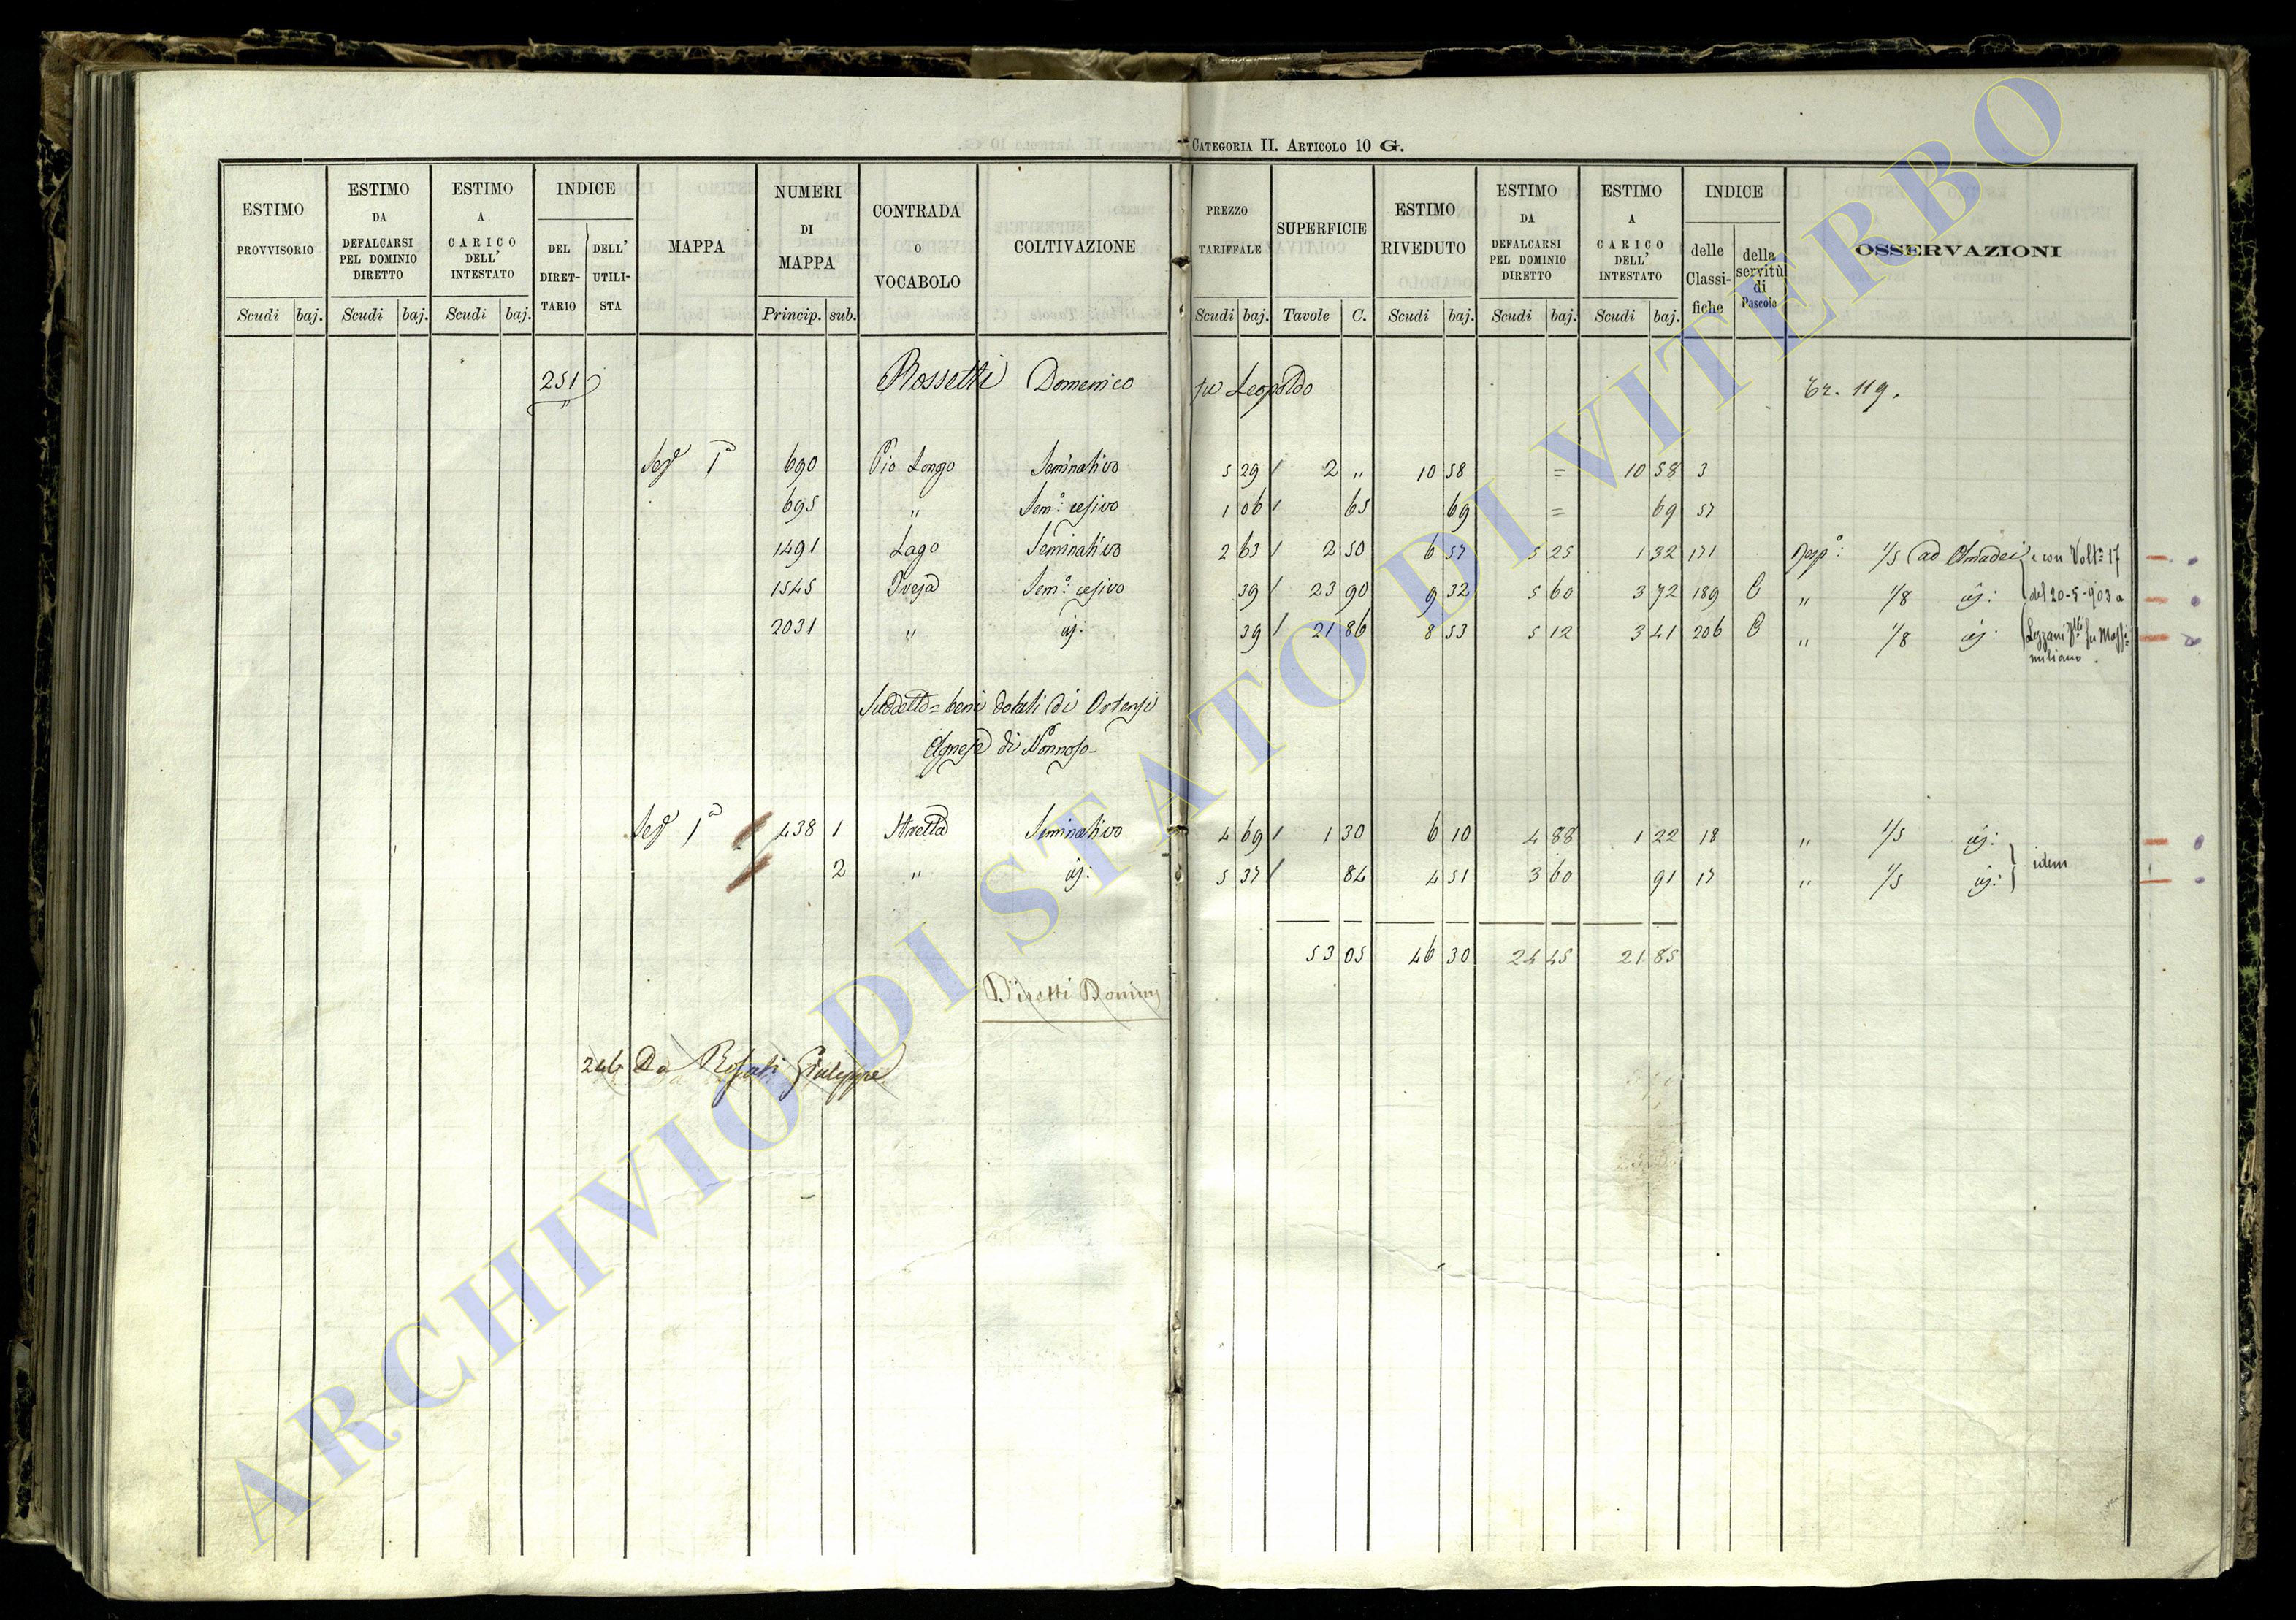 CATEGORIA II. ARTICOLO 10 G.
ESTIMO PROVVISORIO Scudi baj.
ESTIMO DA DEFALCARSI PEL DOMINIO DIRETTO Scudi baj.
ESTIMO A CARICO DELL' INTESTATO Scudi baj.
INDICE DEL DIRETTARIO DELL' UTILISTA
MAPPA
NUMERI DI MAPPA Princip. sub.
CONTRADA O VOCABOLO
COLTIVAZIONE
PREZZO TARIFFALE Scudi baj.
SUPERFICIE Tavole C.
ESTIMO RIVEDUTO Scudi baj.
ESTIMO DA DEFALCARSI PEL DOMINIO DIRETTO Scudi baj.
ESTIMO A CARICO DELL' INTESTATO Scudi baj.
INDICE delle Classifiche della servitù di Pascolo
OSSERVAZIONI
251 Rossetti Domenico fu Leopoldo 119.
1ª 690 Pio Longo Seminativo 5 29 2 " 10 58 = 10 58 3
695 " Sem:º 1 06 65 69 = 69 57
1491 Lago Seminativo 2 63 2 50 6 57 5 25 1 32 171 1/5 ad Amadei e con Volt:ª 17
1545 Sem:º 39 23 90 9 32 5 60 3 72 189 C " 1/8 del 20-5-903 a
2031 " 39 21 86 8 53 5 12 3 41 206 C " 1/8 fu Massimiliano.
Suddetto = beni dotali di Ortensi
Agnese di Nonnoso
1ª 438 1 Stretta Seminativo 4 69 1 30 6 10 4 88 1 22 18 " 1/5
2 " 5 37 84 4 51 3 60 91 17 " 1/5 idem
53 05 46 30 24 45 21 85
Diretti Dominj
246 Da Rosati Giuseppe
ARCHIVIO DI STATO DI VITERBO